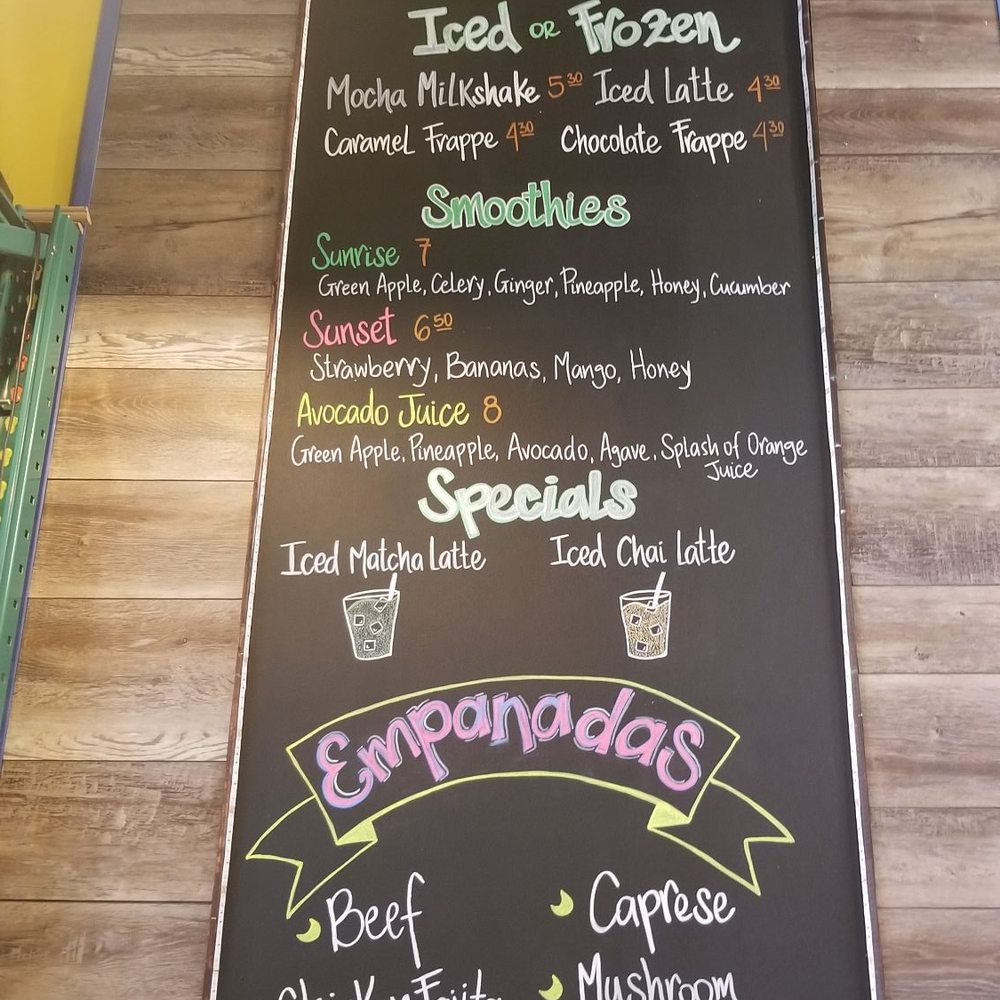 Iced OR Frozen
Mocha Milkshake 5 30 Iced Latte 4 30
Caramel Frappe 4 30 Chocolate Frappe 4 30
Smoothies
Sunrise 7
Green Apple, Celery, Ginger, Pineapple, Honey, Cucumber
Sunset 6 50
Strawberry, Bananas, Mango, Honey
Avocado Juice 8
Green Apple, Pineapple, Avocado, Agave, Splash of Orange
Juice
Specials
Iced Matcha Latte Iced Chai Latte
Empanadas
Beef Caprese
Chicken Fajita Mushroom